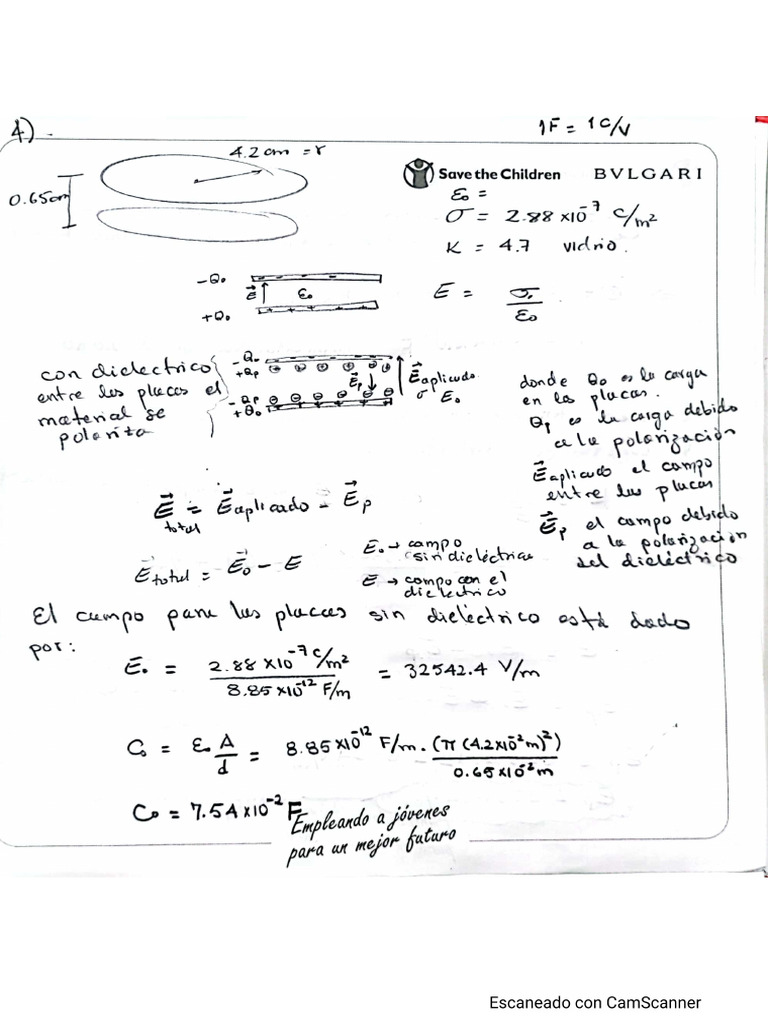 4).
1F = 1 C/V
4.2 cm = r
0.65cm
Save the Children BVLGARI
ε₀ =
σ = 2.88 x10⁻⁷ C/m²
K = 4.7 vidrio.
-Q₀
E⃗ ε₀
+Q₀
E = σ/ε₀
con dielectrico
entre las placas el
material se
polariza
-Q₀
+Qp
-Qp
+Q₀
E⃗p
E⃗ aplicado
σ E₀
donde Q₀ es la carga
en las placas.
Qp es la carga debido
a la polarización
E⃗ aplicado el campo
entre las placas
E⃗p el campo debido
a la polarización
del dieléctrico
E⃗ total = E⃗ aplicado - E⃗p
E⃗ total = E⃗₀ - E
E₀ → campo
sin dieléctrico
E → campo con el
dieléctrico
El campo para las placas sin dieléctrico está dado
por:
E₀ = 2.88 x10⁻⁷ C/m² / 8.85x10⁻¹² F/m = 32542.4 V/m
C₀ = ε₀ A/d = 8.85x10⁻¹² F/m . (π (4.2x10⁻² m)²) / 0.65x10⁻² m
C₀ = 7.54 x10⁻² F
Empleando a jóvenes
para un mejor futuro
Escaneado con CamScanner